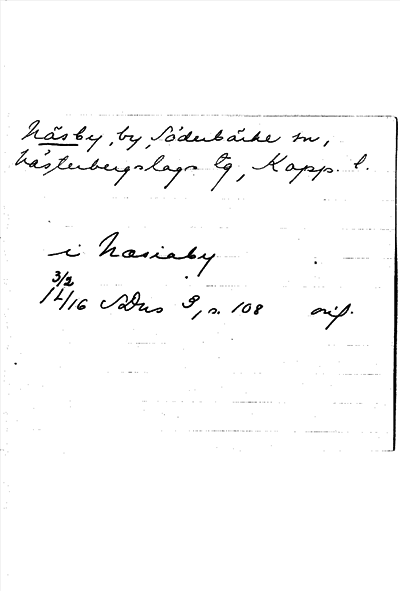 Näsby, by, Söderbärke sn,
Västerbergslags tg, Kopp. l.
i Næsiaby
3/2
1416 SDns 3, s. 108 orig.